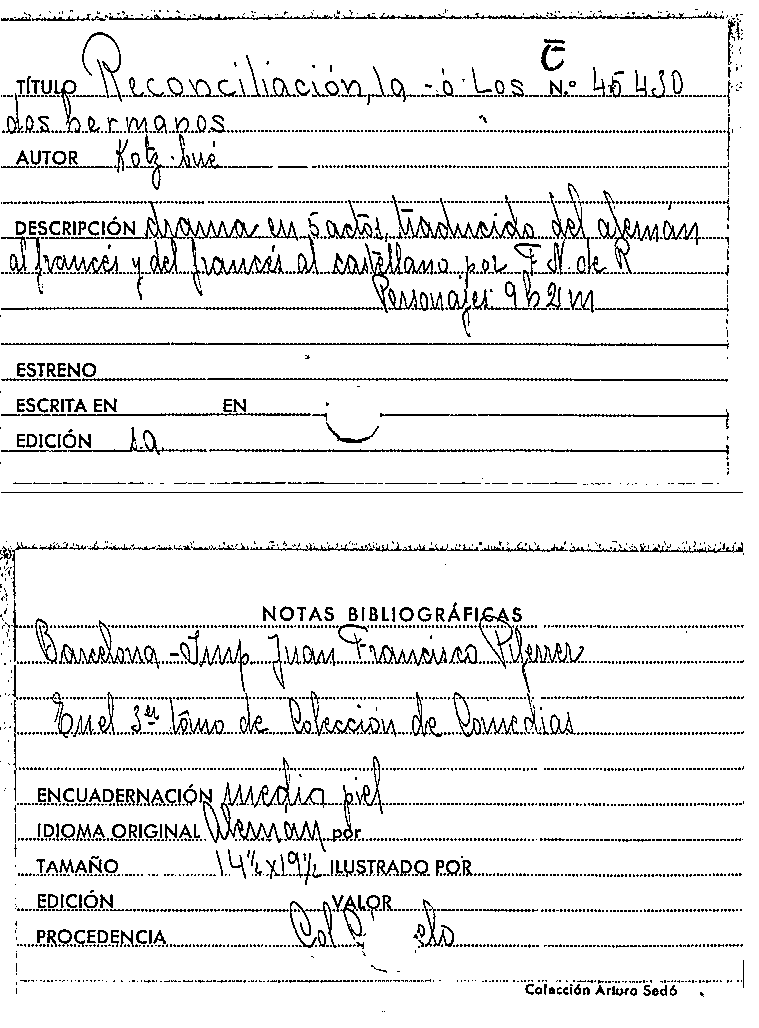 C
TÍTULO Reconciliación, la - ó Los N.º 45430
dos hermanos
AUTOR Kotz-bué
DESCRIPCIÓN drama en 5 actos, traducido del alemán
al francés y del francés al castellano por F. N. de R
Personajes 9h 2m
ESTRENO
ESCRITA EN EN
EDICIÓN 1a
NOTAS BIBLIOGRÁFICAS
Barcelona - Imp Juan Francisco Piferrer
En el 3er tomo de Colección de Comedias
ENCUADERNACIÓN media piel
IDIOMA ORIGINAL Alemán por
TAMAÑO 14½ x 19½ ILUSTRADO POR
EDICIÓN VALOR
PROCEDENCIA Col
Colección Arturo Sedó